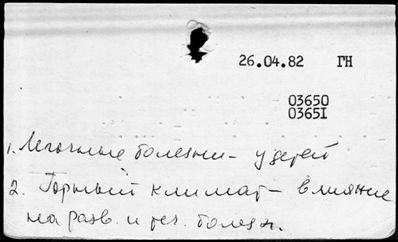 26.04.82 ГН
03650
03651
1. Легочные болезни - у детей
2. Горный климат - влияние
на разв. и теч. болезн.